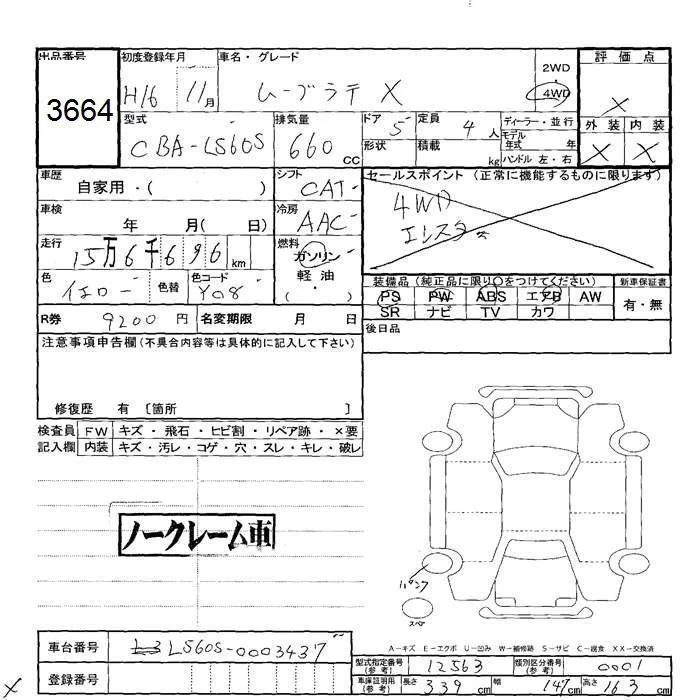 出品番号 初度登録年月 車名・グレード 評価点
3664 H16 11月 ムーブラテ X 2WD 4WD X
型式 排気量 ドア 定員 ディーラー・並行 外装 内装
CBA-L560S 660 CC 5 4人 モデル年式 年 X X
形状 積載 kg ハンドル 左・右
車歴 シフト セールスポイント (正常に機能するものに限ります)
自家用・( ) CAT
車検 冷房 4WD
年 月( 日) AAC エレスタ
走行 燃料
15万6千696km ガソリン
色 色替 色コード 軽油 装備品 (純正品に限り○をつけてください) 新車保証書
イエロー Y08 ( ・ ) PS PW ABS エアB AW 有・無
R券 9200円 名変期限 月 日 SR ナビ TV カワ
注意事項申告欄(不具合内容等は具体的に記入して下さい) 後日品
修復歴 有 〔箇所 〕
検査員 FW キズ・飛石・ヒビ割・リペア跡・×要
記入欄 内装 キズ・汚レ・コゲ・穴・スレ・キレ・破レ
ノークレーム車
パンク
スペア
A-キズ E-エクボ U-凹み W-補修跡 S-サビ C-腐食 XX-交換済
車台番号 L560S-0003437
型式指定番号(参考) 12563 類別区分番号(参考) 0001
登録番号
車庫証明用(参考) 長さ 339cm 幅 147cm 高さ 163cm
X